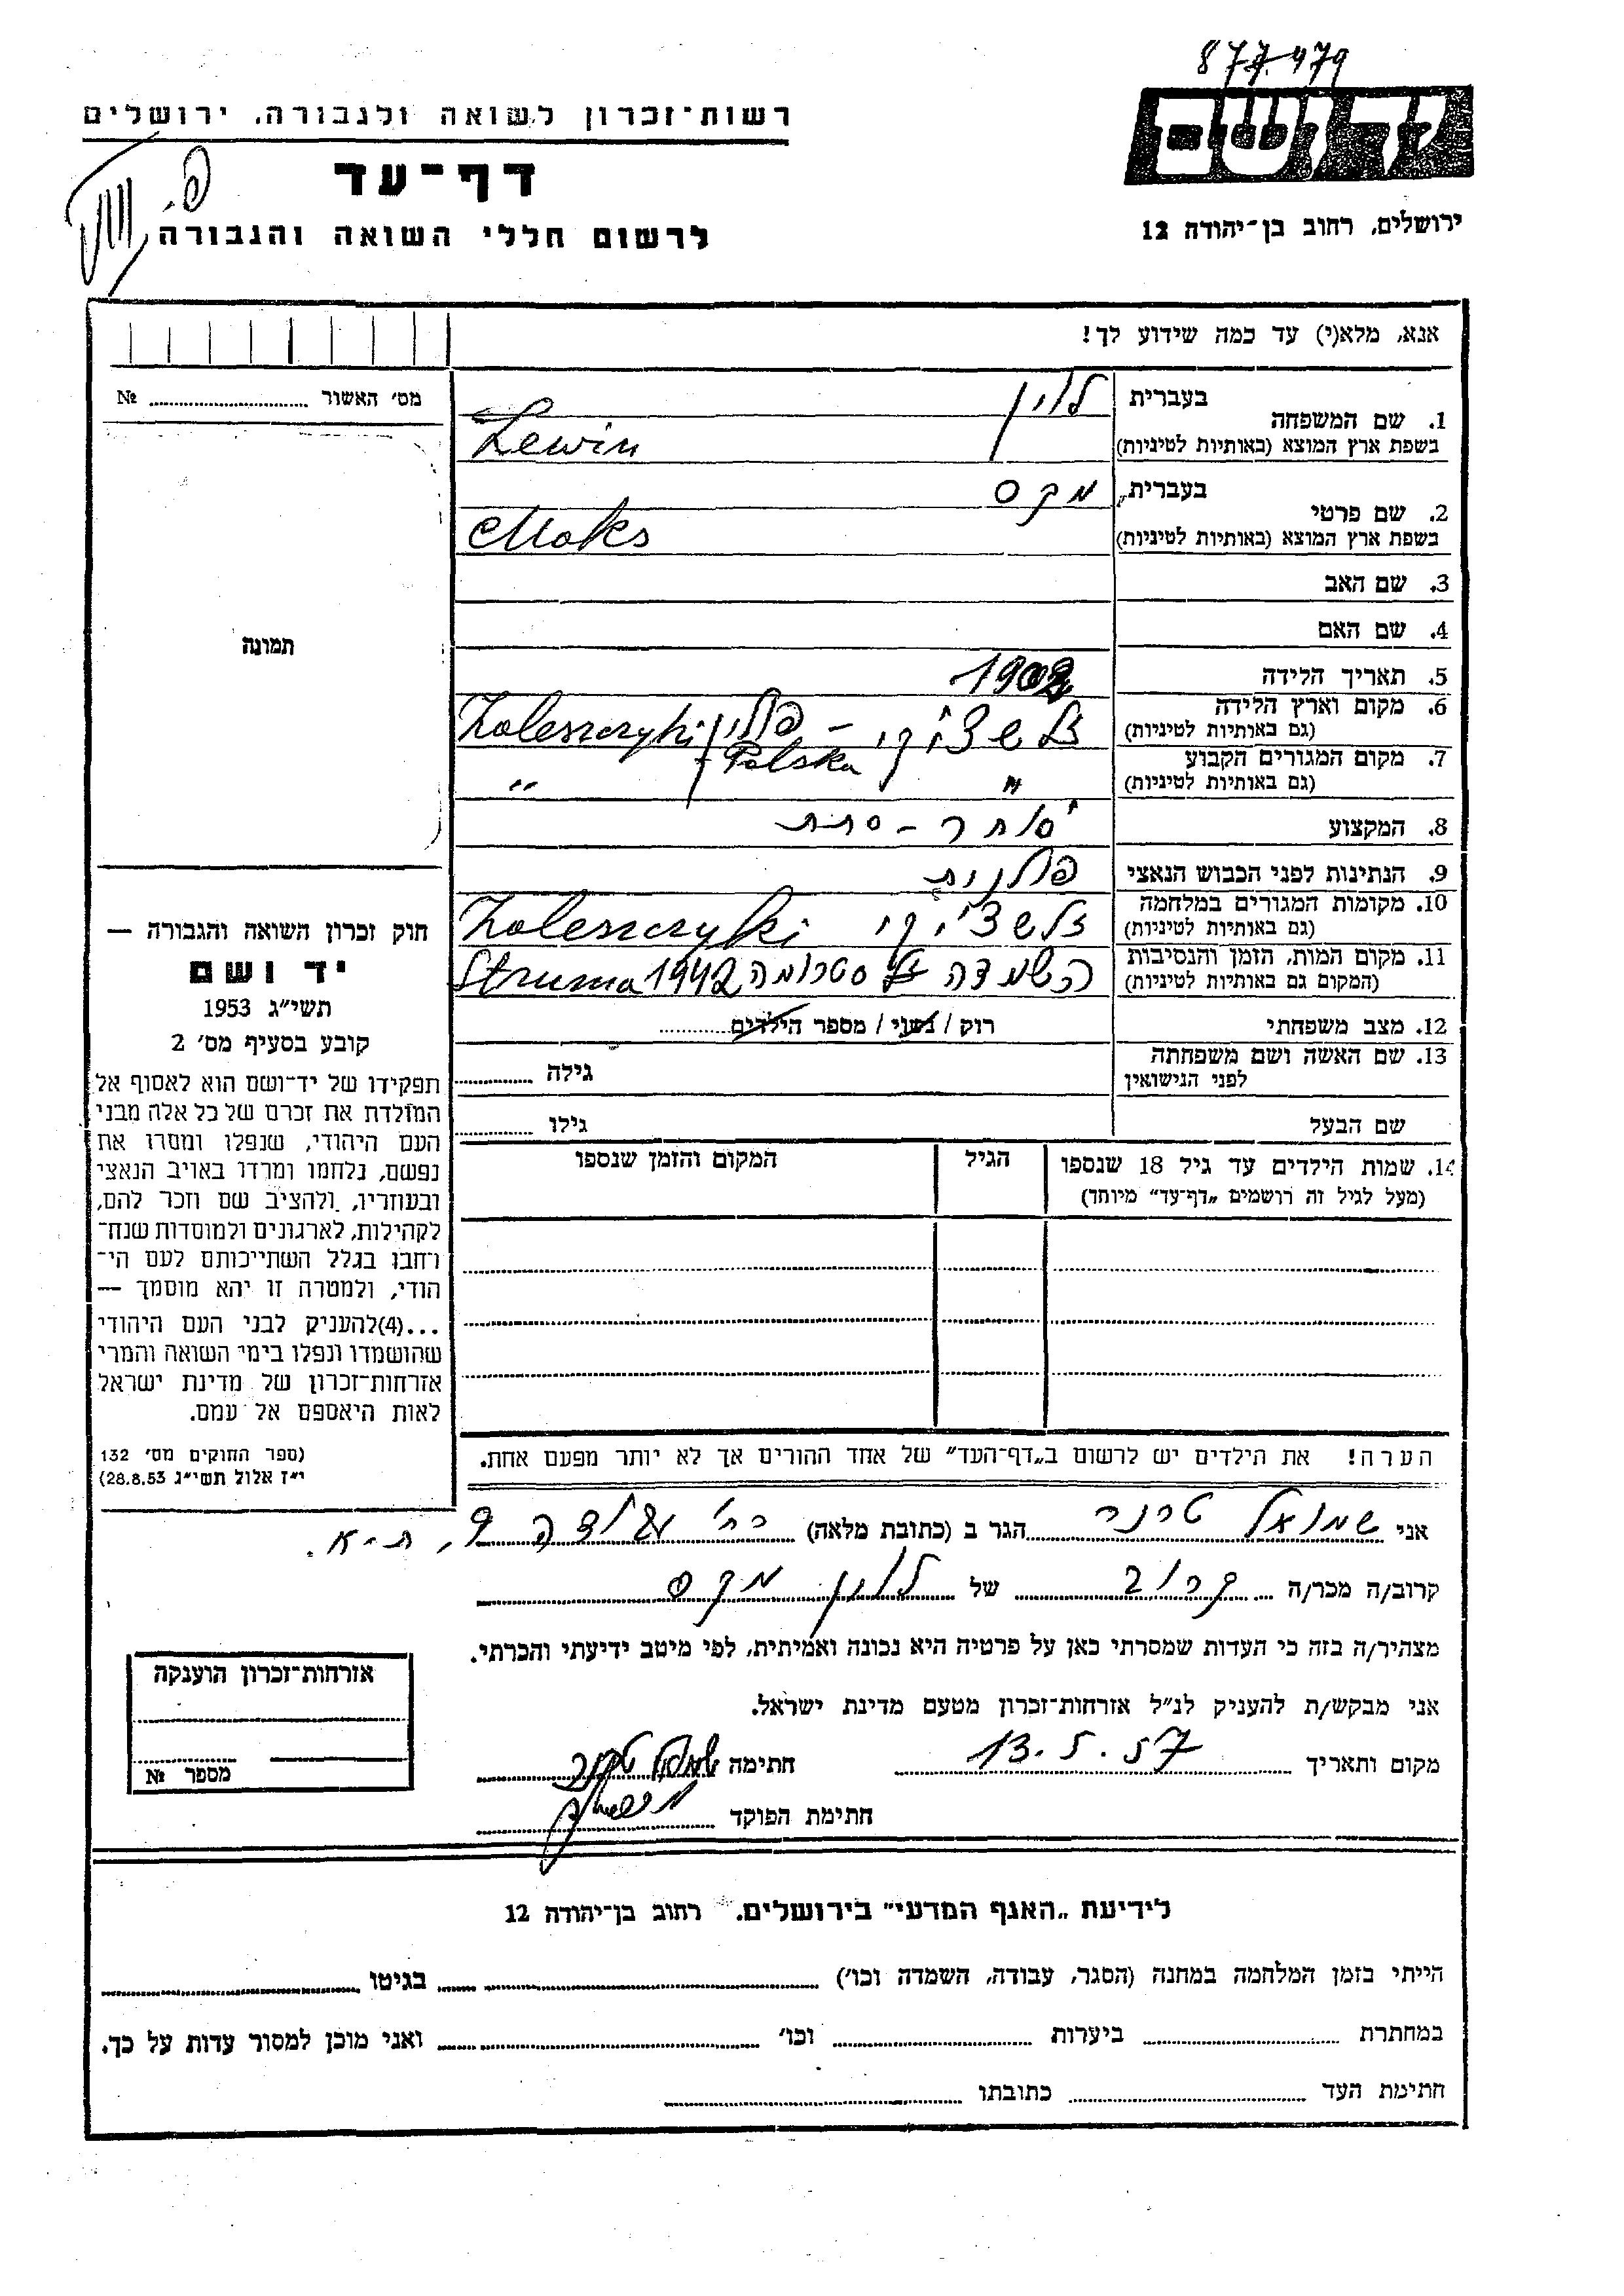 877479
יד ושם
ירושלים, רחוב בן־יהודה 12
רשות־זכרון לשואה ולגבורה, ירושלים
דף־עד
לרשום חללי השואה והגבורה
אנא, מלא(י) עד כמה שידוע לך!
מס' האשור № ........
1. שם המשפחה
בעברית לוין
בשפת ארץ המוצא (באותיות לטיניות) Lewin
2. שם פרטי
בעברית מקס
בשפת ארץ המוצא (באותיות לטיניות) Maks
3. שם האב
4. שם האם
5. תאריך הלידה
6. מקום וארץ הלידה זלשצ'יקי – פולין Zaleszczyki
(גם באותיות לטיניות) - Polska
7. מקום המגורים הקבוע " "
(גם באותיות לטיניות)
8. המקצוע סוחר -
9. הנתינות לפני הכבוש הנאצי פולנית
10. מקומות המגורים במלחמה זלשצ'יקי Zaleszczyki
(גם באותיות לטיניות)
11. מקום המות, הזמן והנסיבות סטרומה 1942 Struma
(המקום גם באותיות לטיניות)
12. מצב משפחתי רוק / נשוי / מספר הילדים........
13. שם האשה ושם משפחתה
לפני הנישואין
גילה ........
שם הבעל גילו ........
14. שמות הילדים עד גיל 18 שנספו
(מעל לגיל זה רושמים „דף־עד” מיוחד)
הגיל
המקום והזמן שנספו
תמונה
חוק זכרון השואה והגבורה —
יד ושם
תשי"ג 1953
קובע בסעיף מס' 2
תפקידו של יד־ושם הוא לאסוף אל
המולדת את זכרם של כל אלה מבני
העם היהודי, שנפלו ומסרו את
נפשם, נלחמו ומרדו באויב הנאצי
ובעוזריו, ולהציב שם וזכר להם,
לקהילות, לארגונים ולמוסדות שנח־
רחבו בגלל השתייכותם לעם הי־
הודי, ולמטרה זו יהא מוסמך —
...(4)להעניק לבני העם היהודי
שהושמדו ונפלו בימי השואה והמרי
אזרחות־זכרון של מדינת ישראל
לאות היאספם אל עמם.
(ספר החוקים מס' 132
י"ז אלול תשי"ג 28.8.53)
הערה! את הילדים יש לרשום ב„דף־העד” של אחד ההורים אך לא יותר מפעם אחת.
אני שמואל טרנר הגר ב (כתובת מלאה) רח' 9, ת-א.
קרוב/ה מכר/ה קרוב של לוין מקס
מצהיר/ה בזה כי העדות שמסרתי כאן על פרטיה היא נכונה ואמיתית, לפי מיטב ידיעתי והכרתי.
אני מבקש/ת להעניק לנ"ל אזרחות־זכרון מטעם מדינת ישראל.
מקום ותאריך 13.5.57 חתימה שמואל טרנר
חתימת הפוקד
אזרחות־זכרון הוענקה
מספר №
לידיעת „האגף המדעי” בירושלים. רחוב בן־יהודה 12
הייתי בזמן המלחמה במחנה (הסגר, עבודה, השמדה וכו') ........ בגיטו ........
במחתרת ........ ביערות ........ וכו' ........ ואני מוכן למסור עדות על כך.
חתימת העד ........ כתובתו ........